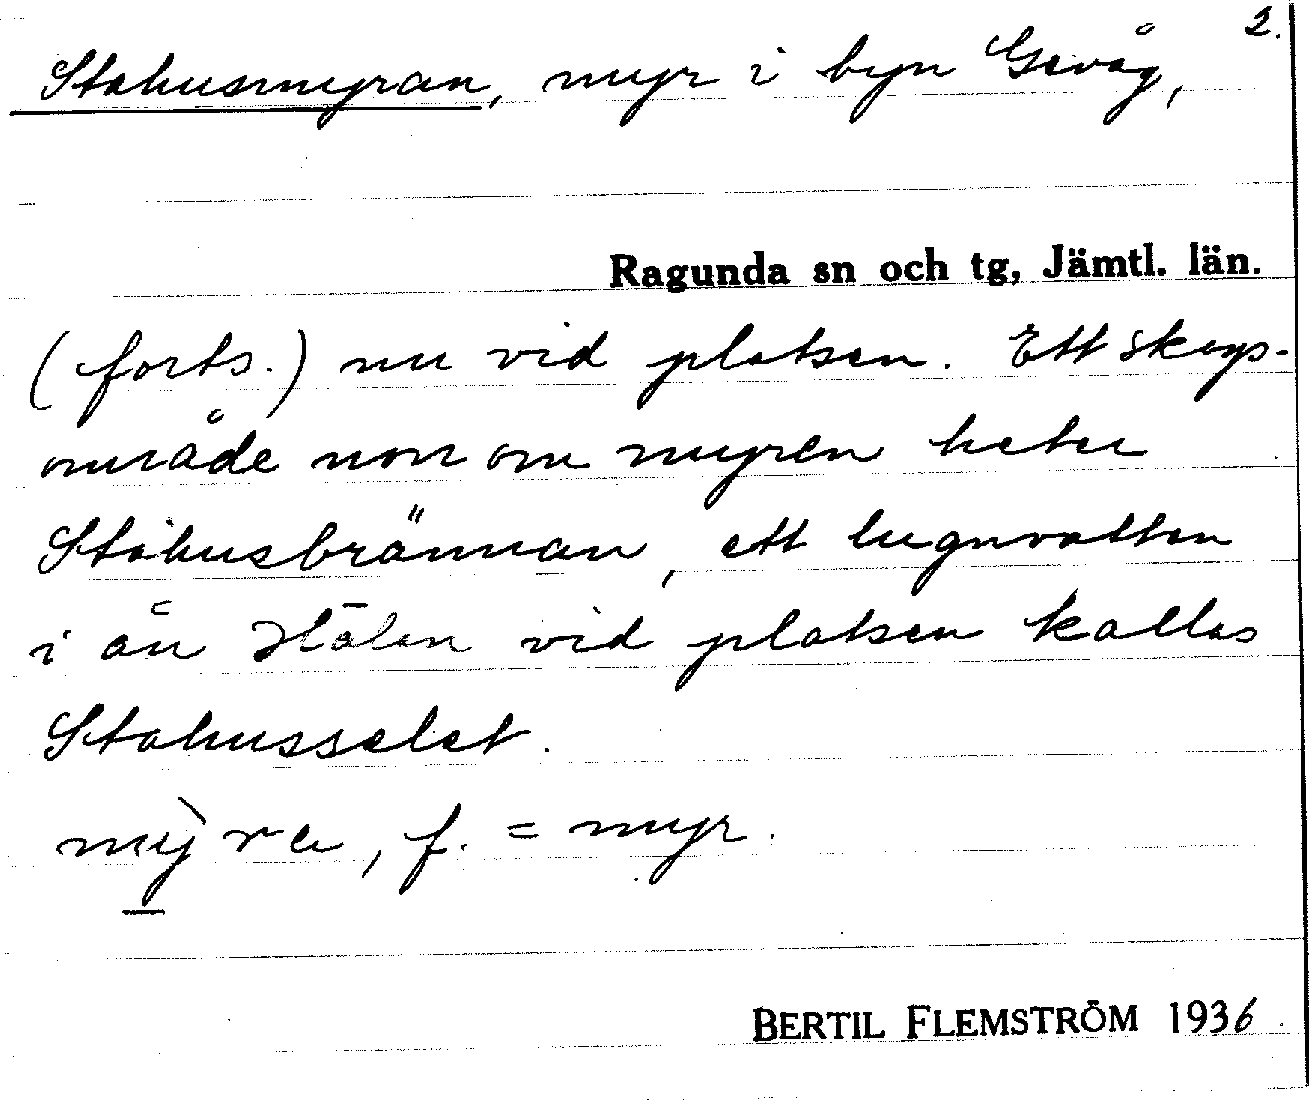 2.
Stahusmyran, myr i byn Gevåg,
Ragunda sn och tg, Jämtl. län.
(forts.) nu vid platsen. Ett skogs-
område norr om myren heter
Stahusbrännan, ett lugnvatten
i ån Hålen vid platsen kallas
Stahusselet.
mỳ̱ra, f. = myr.
BERTIL FLEMSTRÖM 1936.